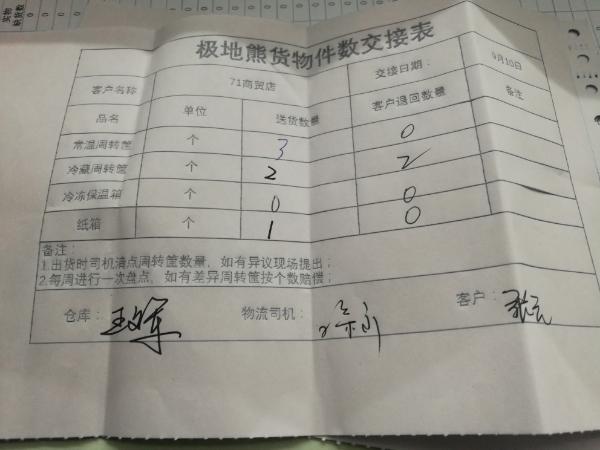 极地熊货物件数交接表
客户名称 71商贸店 交接日期： 9月10日
品名 单位 送货数量 客户退回数量 备注
常温周转筐 个 3 0
冷藏周转筐 个 2 2
冷冻保温箱 个 0 0
纸箱 个 1 0
备注：
1.出货时司机清点周转筐数量，如有异议现场提出；
2.每周进行一次盘点，如有差异周转筐按个数赔偿；
仓库： 物流司机： 客户：